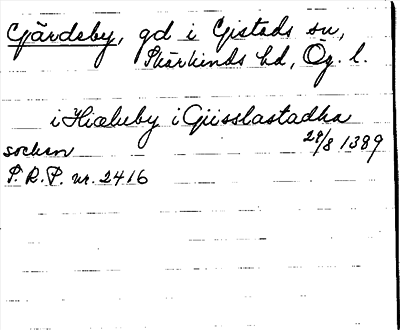 Gärdsby, gd i Gistads sn,
Skärkinds hd, Ög. l.
i Hiæluby i Giisslastadha
socken 28/8 1389
P. R. P. nr. 2416